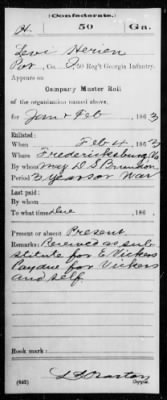 (Confederate.)
H. 50 Ga.
Levi Herien
Pvt., Co. 50 Reg't Georgia Infantry.
Appears on
Company Muster Roll
of the organization named above,
for Jan & Feb, 1863
Enlisted:
When Feb 4, 1863
Where Fredericksburg, Va
By whom Maj D. T. Brunson
Period 3 Years or War
Last paid:
By whom
To what time due, 186 .
Present or absent Present
Remarks: Received as sub-
stitute for E Vickers
Pay due for Vickers
and self.
Book mark:
(642)
Copyist.